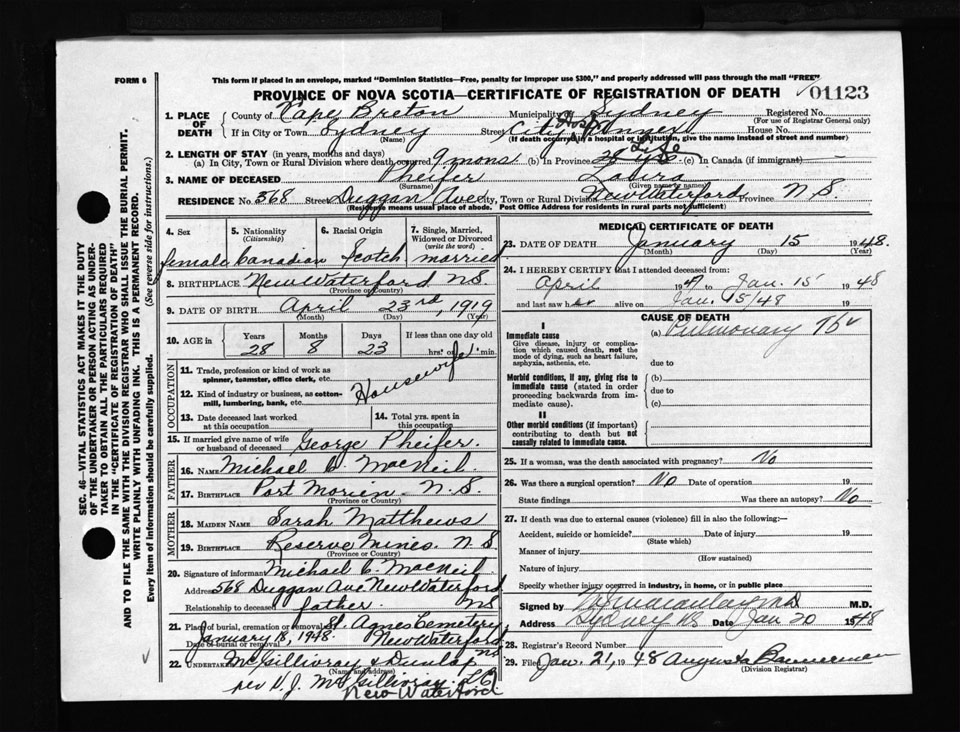 FORM 6
This form if placed in an envelope, marked "Dominion Statistics—Free, penalty for improper use $300," and properly addressed will pass through the mail "FREE"
PROVINCE OF NOVA SCOTIA—CERTIFICATE OF REGISTRATION OF DEATH
01123
1. PLACE OF DEATH
County of Cape Breton Municipality of Sydney Registered No.
(For use of Registrar General only)
If in City or Town Sydney Street City Hosp. Annex House No.
(Name) (If death occurred in a hospital or institution, give the name instead of street and number)
2. LENGTH OF STAY (in years, months and days)
(a) In City, Town or Rural Division where death occurred 9 mons (b) In Province Life (c) In Canada (if immigrant) —
3. NAME OF DECEASED Pheifer
(Surname) (Given name or names)
RESIDENCE No. 568 Street Duggan Ave City, Town or Rural Division New Waterford Province N.S.
(Residence means usual place of abode. Post Office Address for residents in rural parts not sufficient)
4. Sex female
5. Nationality (Citizenship) Canadian
6. Racial Origin Scotch
7. Single, Married, Widowed or Divorced (write the word) married
8. BIRTHPLACE New Waterford N.S.
(Province or Country)
9. DATE OF BIRTH April 23rd, 1919
(Month) (Day) (Year)
10. AGE in Years Months Days If less than one day old
28 8 23 hrs. or min.
OCCUPATION
11. Trade, profession or kind of work as spinner, teamster, office clerk, etc. Housewife
12. Kind of industry or business, as cotton-mill, lumbering, bank, etc.
13. Date deceased last worked at this occupation
14. Total yrs. spent in this occupation
15. If married give name of wife or husband of deceased George Pheifer.
FATHER
16. NAME Michael C. MacNeil.
17. BIRTHPLACE Port Morien. N.S.
(Province or Country)
MOTHER
18. MAIDEN NAME Sarah Matthews
19. BIRTHPLACE Reserve Mines. N.S.
(Province or Country)
20. Signature of informant Michael C. MacNeil
Address 568 Duggan Ave. New Waterford
Relationship to deceased father. NS
21. Place of burial, cremation or removal St. Agnes Cemetery
Date of burial or removal January 18, 1948. New Waterford
22. UNDERTAKER McGillivray & Dunlap NS
(Name and address)
per H.J. McGillivray
New Waterford
MEDICAL CERTIFICATE OF DEATH
23. DATE OF DEATH January 15 1948.
(Month) (Day)
24. I HEREBY CERTIFY that I attended deceased from:
April 1947 to Jan. 15 1948
and last saw her alive on Jan. 15/48 19
CAUSE OF DEATH
I
Immediate cause (a) Pulmonary Tbc
Give disease, injury or complication which caused death, not the mode of dying, such as heart failure, asphyxia, asthenia, etc.
due to
Morbid conditions, if any, giving rise to immediate cause (stated in order proceeding backwards from immediate cause).
(b)
due to
(c)
II
Other morbid conditions (if important) contributing to death but not causally related to immediate cause.
25. If a woman, was the death associated with pregnancy? No
26. Was there a surgical operation? No Date of operation 19
State findings Was there an autopsy? No
27. If death was due to external causes (violence) fill in also the following:—
Accident, suicide or homicide? Date of injury 19
(State which)
Manner of injury
(How sustained)
Nature of injury
Specify whether injury occurred in industry, in home, or in public place
Signed by M.D.
Address Sydney NS Date Jan 20 1948
28. Registrar's Record Number
29. Filed Jan. 21, 1948 Augusta Bannerman
(Division Registrar)
SEC. 46—VITAL STATISTICS ACT MAKES IT THE DUTY
OF THE UNDERTAKER OR PERSON ACTING AS UNDER-
TAKER TO OBTAIN ALL THE PARTICULARS REQUIRED
IN THE "CERTIFICATE OF REGISTRATION OF DEATH"
AND TO FILE THE SAME WITH THE DIVISION REGISTRAR WHO SHALL ISSUE THE BURIAL PERMIT.
WRITE PLAINLY WITH UNFADING INK. THIS IS A PERMANENT RECORD.
Every item of information should be carefully supplied. (See reverse side for instructions.)